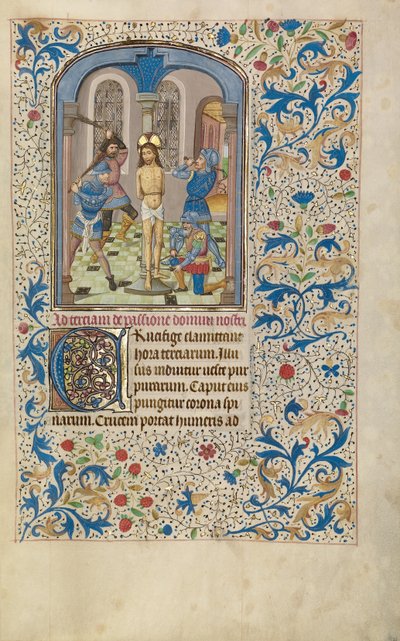 Ad terciam de passione domini nostri
CRucifige clamitant
hora terciarum. Illu
sus induitur ueste pur
purarum. Caput eius
pungitur corona spi
narum. Crucem portat humeris ad